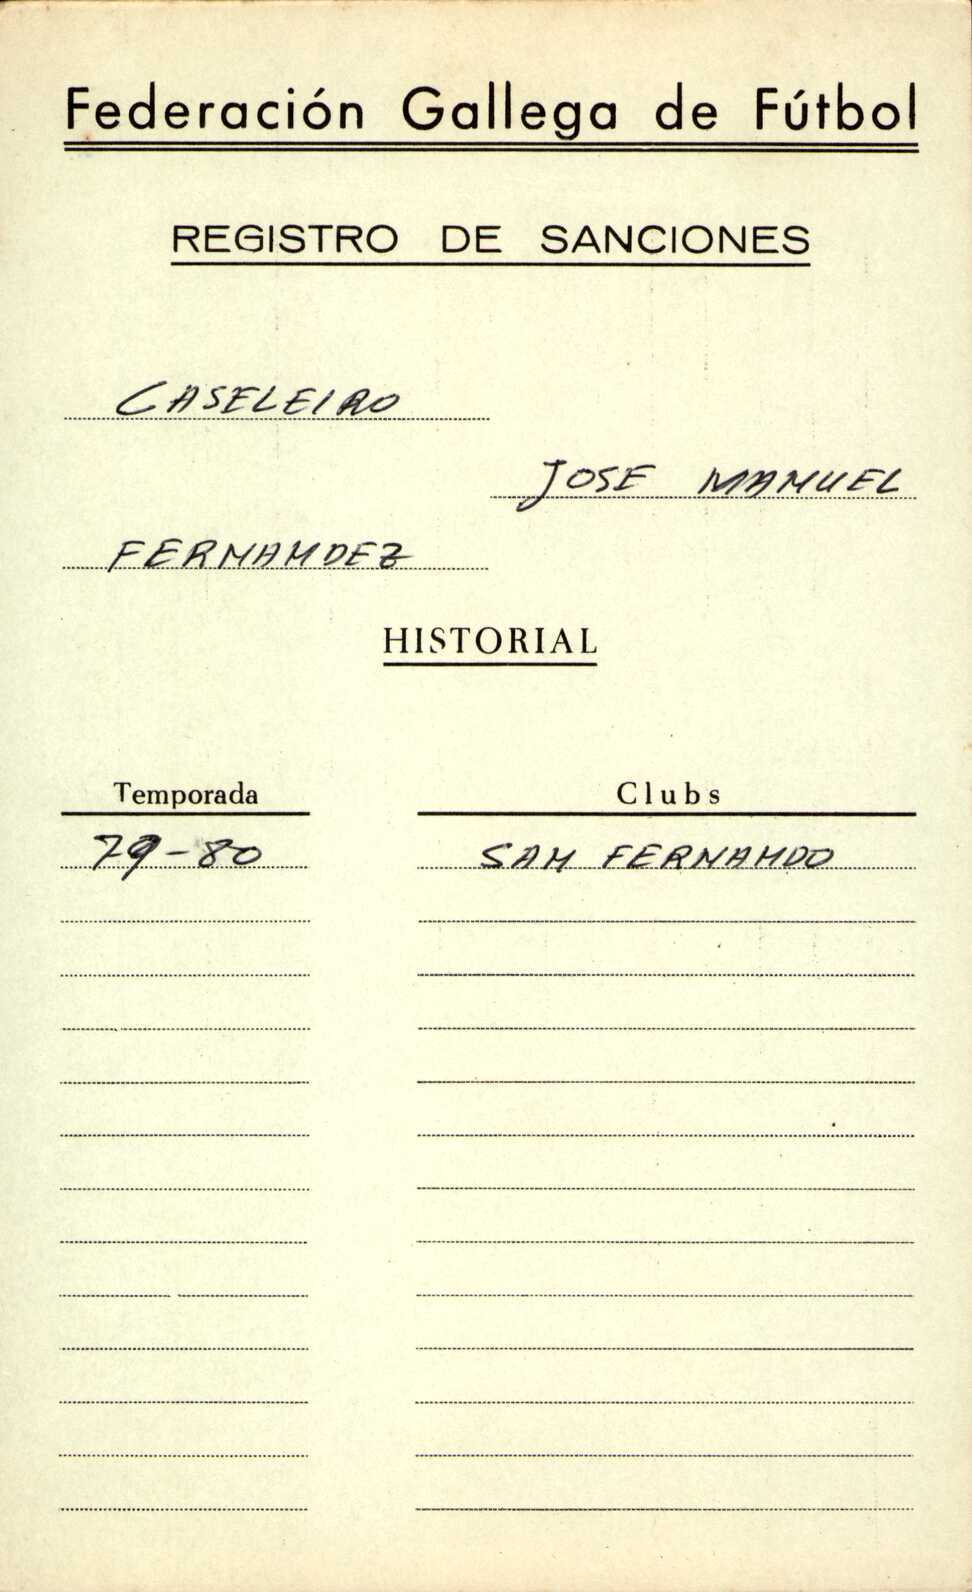 Federación Gallega de Fútbol
REGISTRO DE SANCIONES
CASELEIRO
JOSE MANUEL
FERNANDEZ
HISTORIAL
Temporada Clubs
79-80 SAN FERNANDO